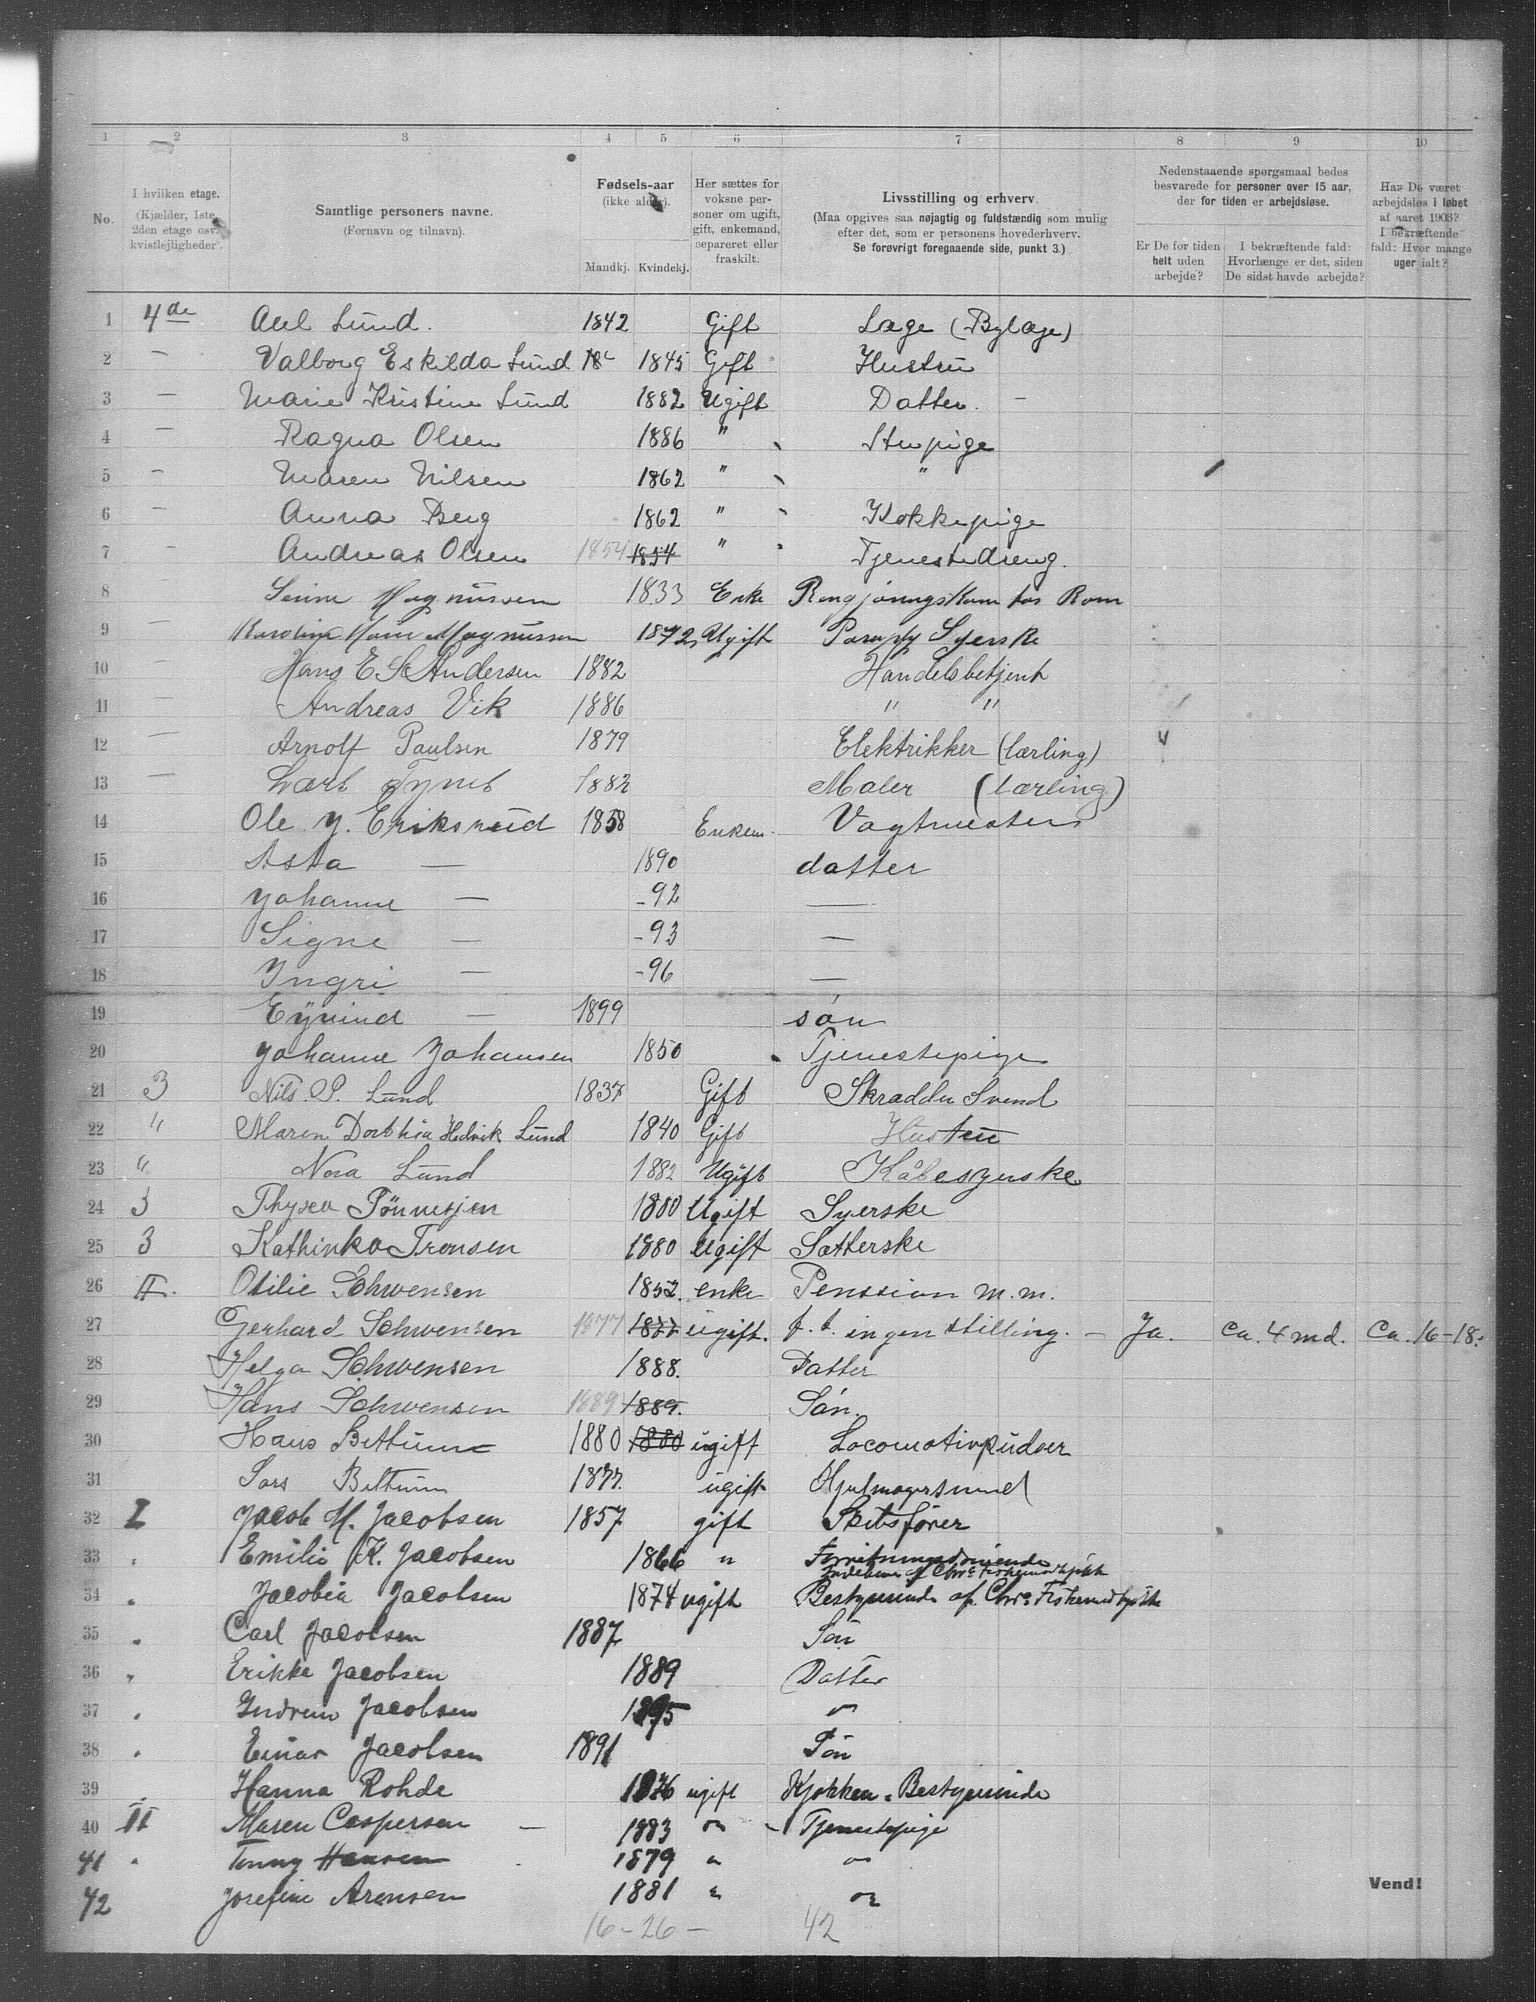 1 2 3 4 5 6 7 8 9 10
No.
I hvilken etage.
(Kjælder, 1ste, 2den etage osv. kvistlejligheder).
Samtlige personers navne.
(Fornavn og tilnavn).
Fødsels-aar
(ikke alder).
Mandkj. Kvindekj.
Her sættes for voksne personer om ugift, gift, enkemand, separeret eller fraskilt.
Livsstilling og erhverv
(Maa opgives saa nøjagtig og fuldstændig som mulig efter det, som er personens hovederhverv.
Se forøvrigt foregaaende side, punkt 3.)
Nedenstaaende spørgsmaal bedes besvarede for personer over 15 aar, der for tiden er arbejdsløse.
Er De for tiden helt uden arbejde?
I bekræftende fald: Hvorlænge er det, siden De sidst havde arbejde?
Har De været arbejdsløs i løbet af aaret 1903? I bekræftende fald: Hvor mange uger ialt?
1 4de Axel Lund. 1842 Gift Læge (Bylæge)
2 — Valborg Eskilda Lund 18 1845 Gift Hustru
3 — Marie Kristine Lund 1882 Ugift Datter. —
4 — Ragna Olsen 1886 " Stupige
5 — Maren Nilsen 1862 " "
6 — Anna Berg 1862 " Kokkepige
7 — Andreas Olsen 1854 1854 " Tjenestedreng.
8 — Magnussen 1833 Enke Rengjøringskone for Rom
9 — Karoline Marie Magnussen 1872 Ugift Syerske
10 — Hans E S Andersen 1882 Handelsbetjent
11 — Andreas Vik 1886 " "
12 — Arnolf Paulsen 1879 Elektrikker (lærling)
13 — 1882 Maler (lærling)
14 Ole J. Eriksrud 1858 Enkem. Vagtmester
15 Asta — 1890 datter
16 Johanne — -92 —
17 Signe — -93 —
18 Ingri — -96 —
19 Eyvind — 1899 søn
20 Johanne Johansen 1850 Tjenestepige
21 3 Nils. P. Lund 1837 Gift Skrædder Svend
22 " Maren Dorthea Hedvik Lund 1840 Gift Hustru
23 " Nora Lund 1882 Ugift Kåbesyerske
24 3 Thyra Tønnesjen 1880 Ugift Syerske
25 3 Kathinka Tronsen 1880 Ugift Sætterske
26 II. Otilie Schwensen 1852. enke Penssion m.m.
27 Gerhard Schwensen 1877 1877 ugift. f. t. ingen stilling. — Ja. ca. 4 md. Ca. 16-18.
28 Helga Schwensen 1888. Datter
29 Hans Schwensen 1889 1889. Søn.
30 Hans Bettum 1880 1880 ugift Locomotivpudser
31 Lars Bettum 1877. ugift Hjulmagersvend
32 I Jacob M. Jacobsen 1857 gift Skibsfører
33 Emilie K. Jacobsen 1866 " Forretningsdrivende
Indehaver af Chr.a Fiskemadkjøkk
34 Jacobia Jacobsen 1874 ugift Bestyrerinde af Chr.a Fiskemadkjøkk
35 Carl Jacobsen 1887 Søn
36 Erikke Jacobsen 1889 Datter
37 Gudrun Jacobsen 1895 "
38 Einar Jacobsen 1891 Søn
39 Hanna Rohde 1876 ugift Kjøkken-Bestyrerinde
40 II Maren Caspersen — 1883 " - Tjenestepige
41 Tenny Hansen 1879 " "
42 Josefine Arensen 1881 " "
Vend!
16-26- 42